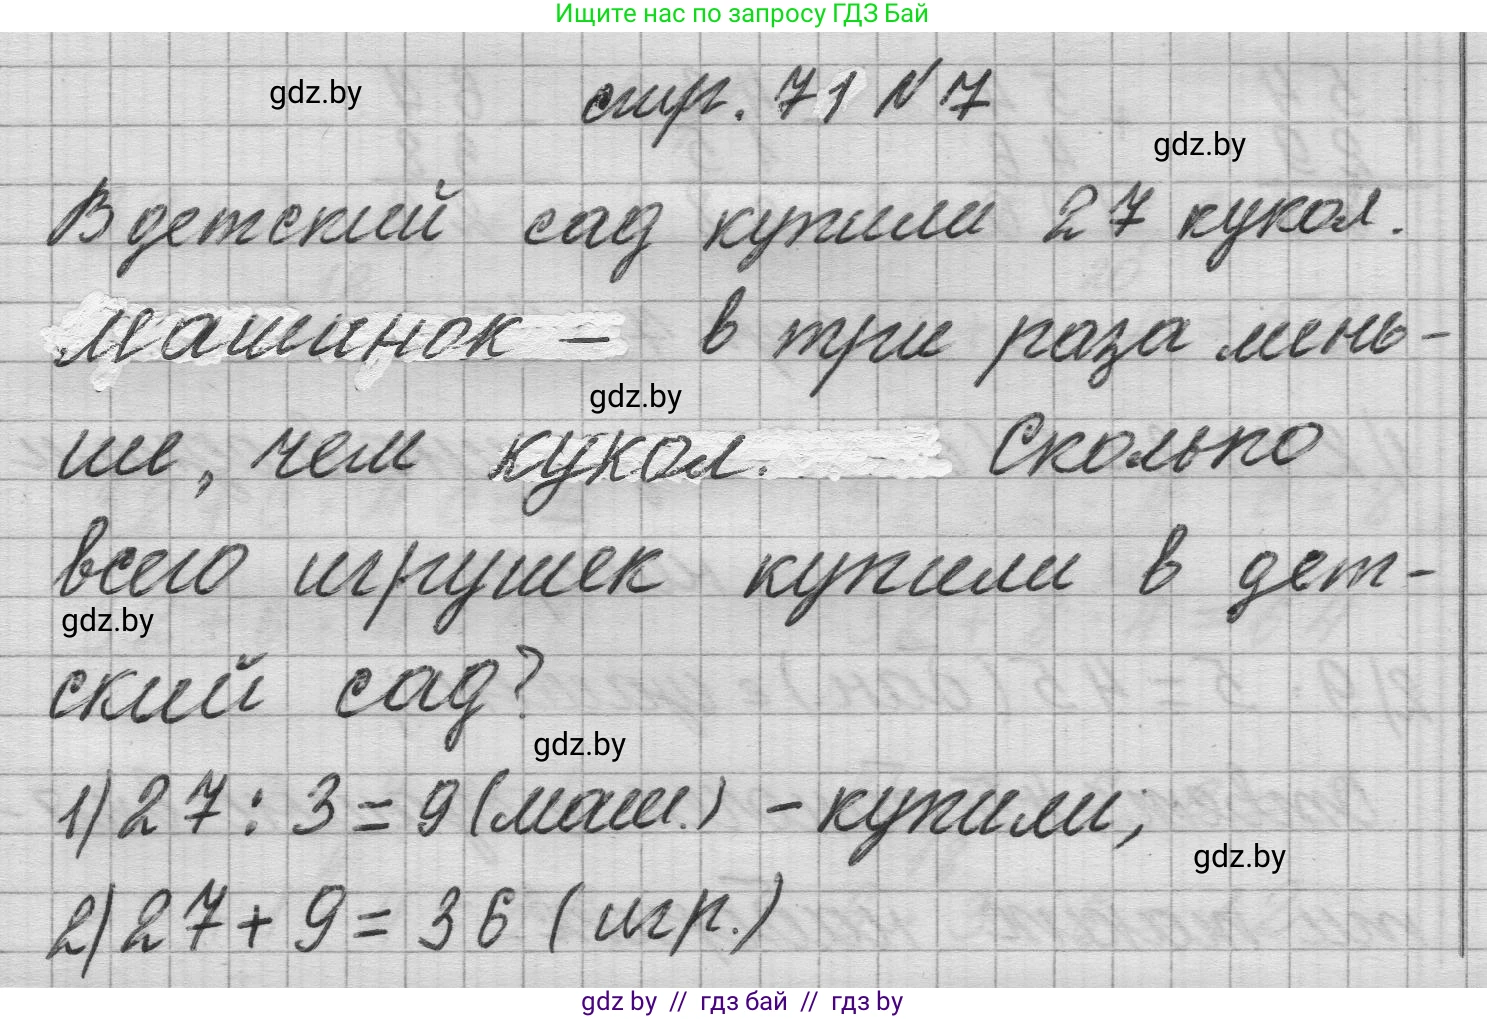 Ищите нас по запросу ГДЗ Бай
gdz.by
стр. 71 №7
gdz.by
В детский сад купили 27 кукол.
Машинок – в три раза мень-
gdz.by
ше, чем кукол. Сколько
всего игрушек купили в дет-
gdz.by
ский сад?
gdz.by
1) 27 : 3 = 9 (маш.) - купили;
gdz.by
2) 27 + 9 = 36 (игр.)
gdz by // гдз бай // гдз by